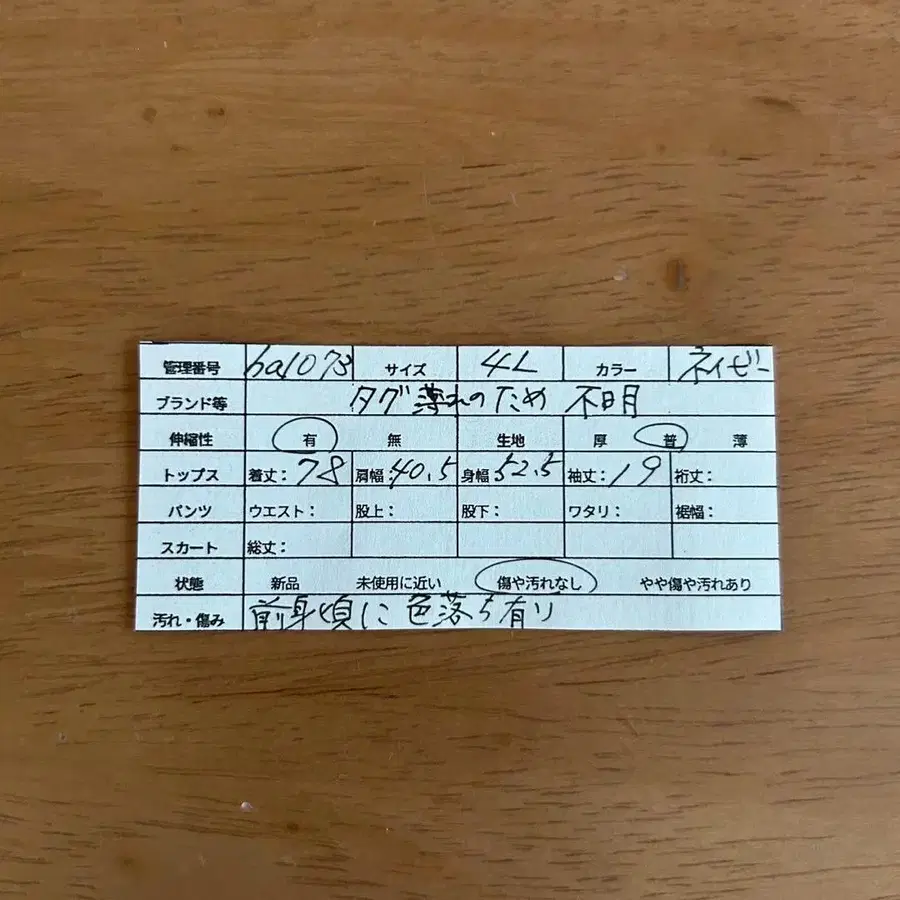 管理番号 ha1073 サイズ 4L カラー ネイビー
ブランド等 タグ薄れのため 不明
伸縮性 有 無 生地 厚 普 薄
トップス 着丈:78 肩幅:40.5 身幅:52.5 袖丈:19 裄丈:
パンツ ウエスト: 股上: 股下: ワタリ: 裾幅:
スカート 総丈:
状態 新品 未使用に近い 傷や汚れなし やや傷や汚れあり
汚れ・傷み 前身頃に色落ち有り